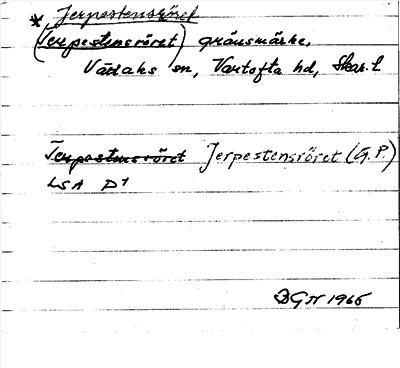 * Jerpestensröret
(Terpestensröret) gränsmärke,
Vårkals sn, Vartofta hd, Skar. l
Terpestensröret Jerpestensröret (G.P.)
LSA D7
GN 1965